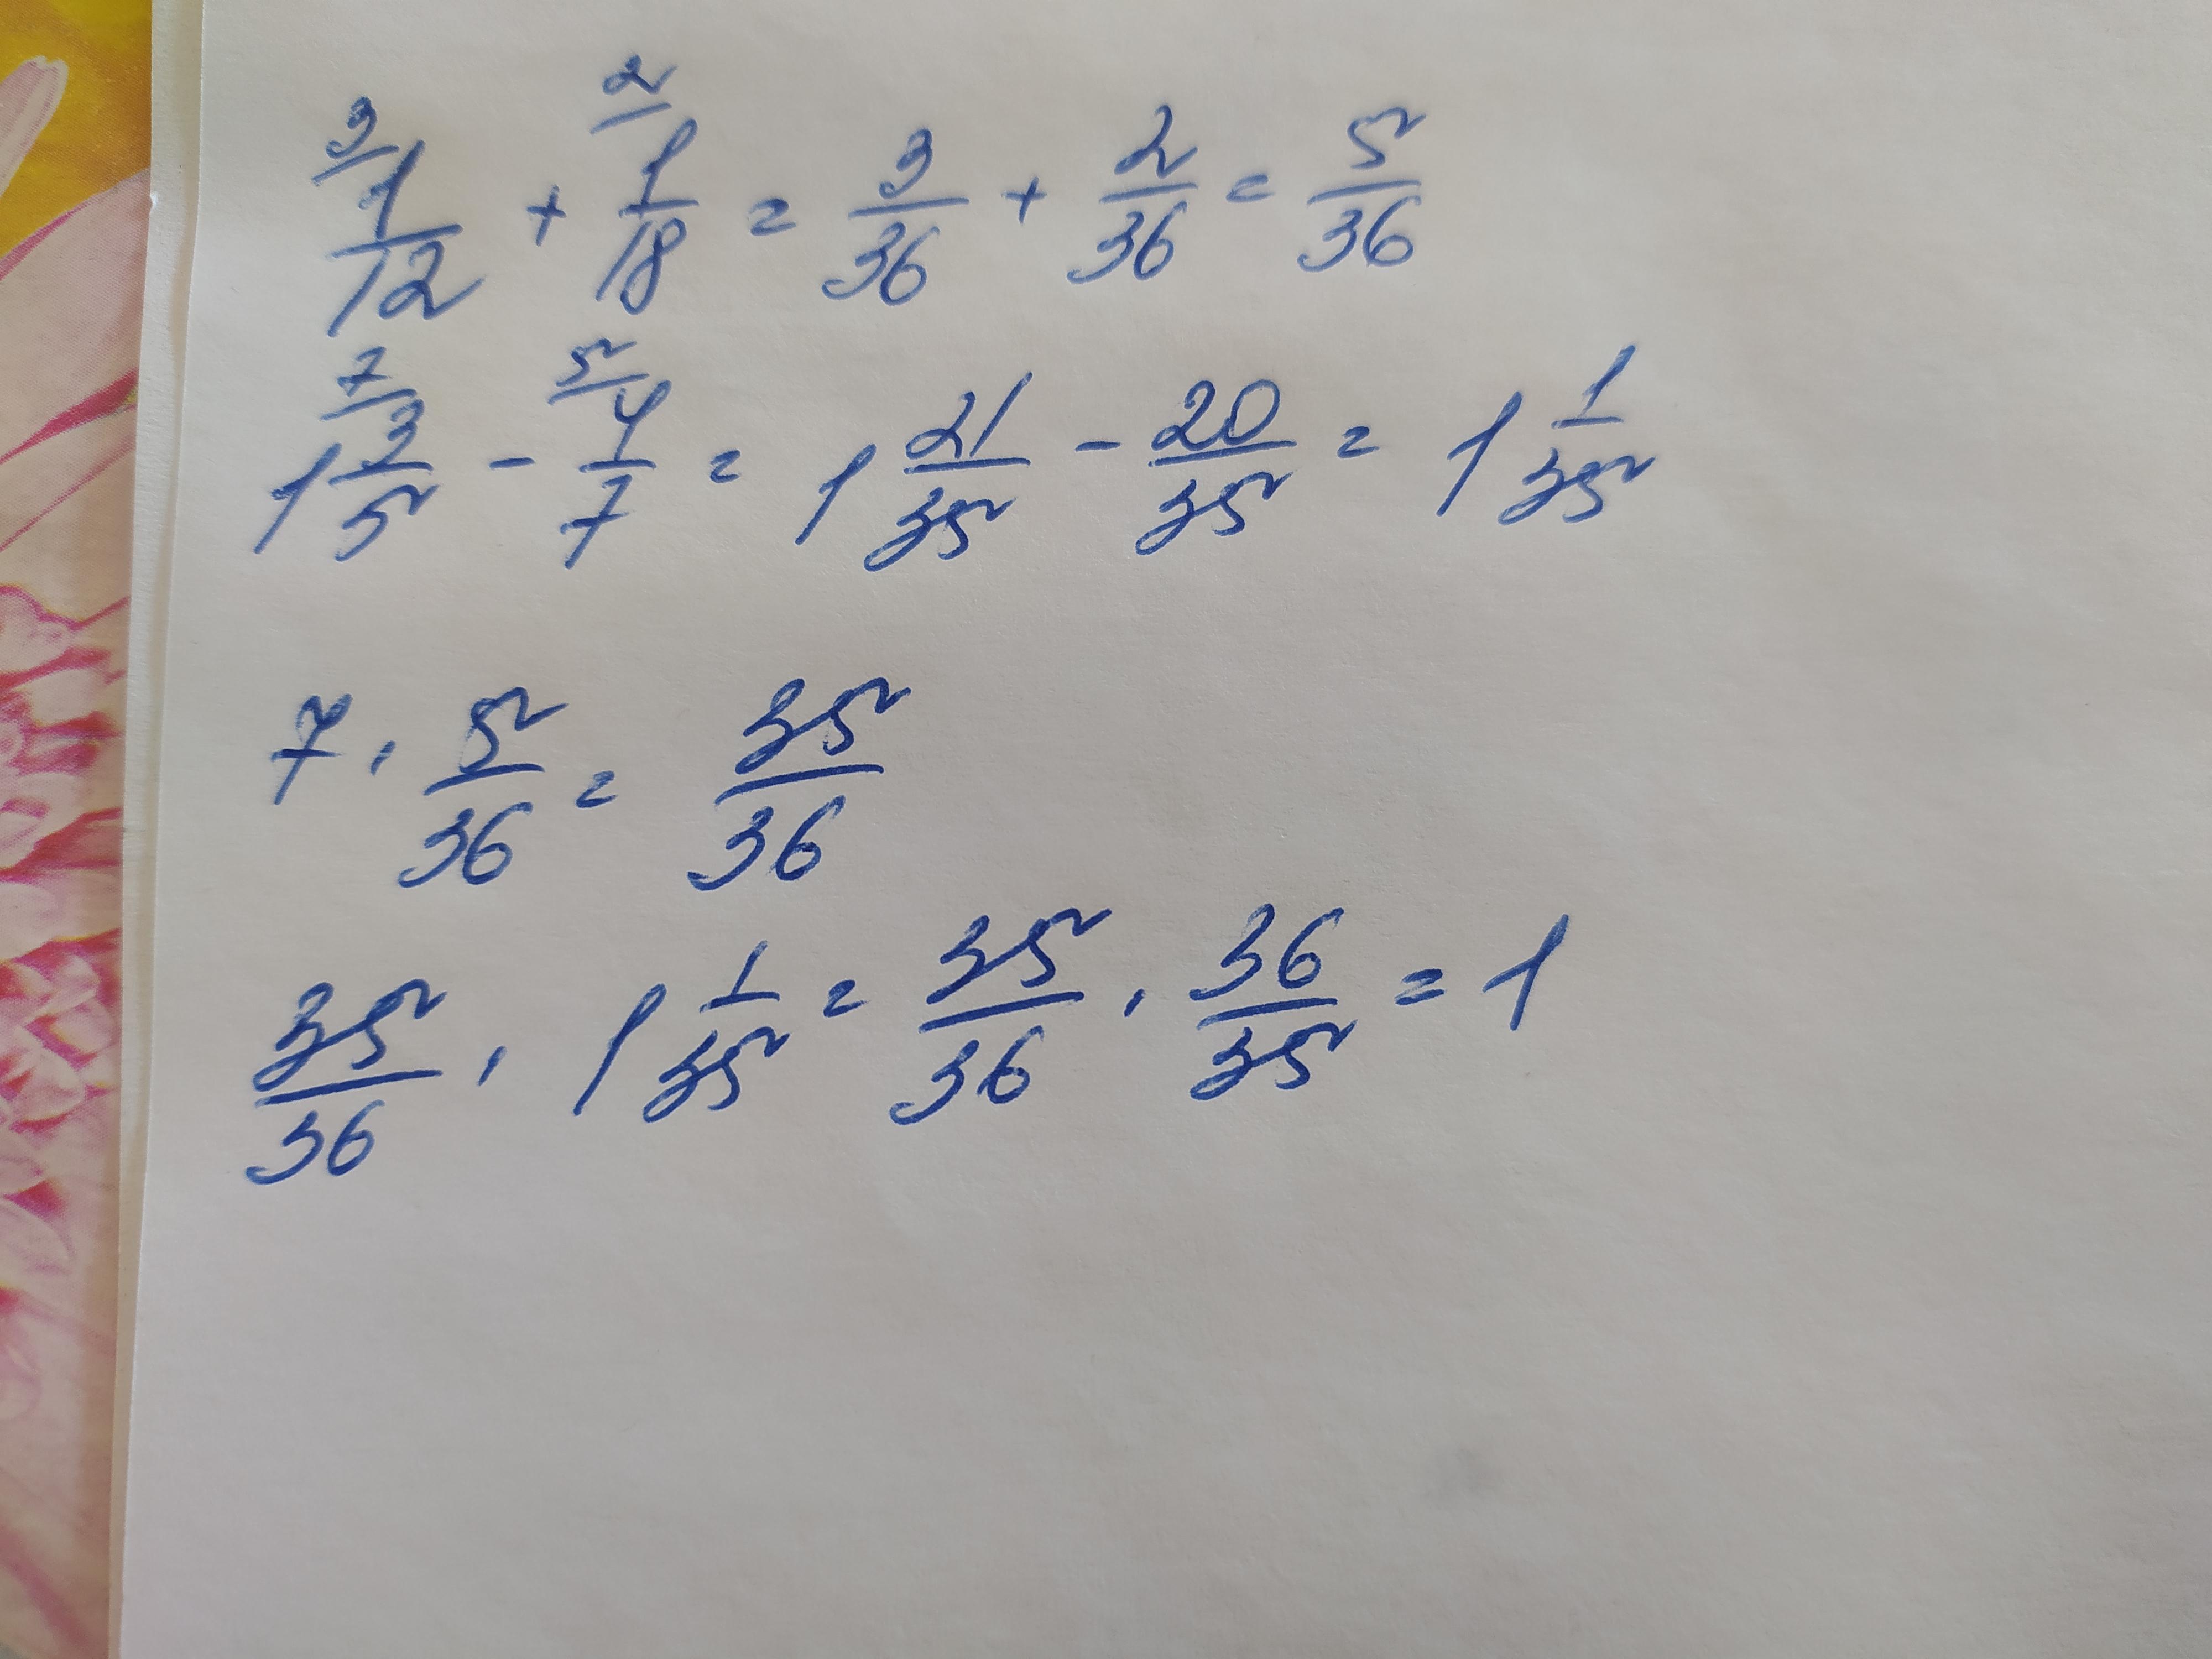 3/ 1/12 + 2/ 1/18 = 3/36 + 2/36 = 5/36
7/ 1 3/5 - 5/ 4/7 = 1 21/35 - 20/35 = 1 1/35
7 · 5/36 = 35/36
35/36 · 1 1/35 = 35/36 · 36/35 = 1